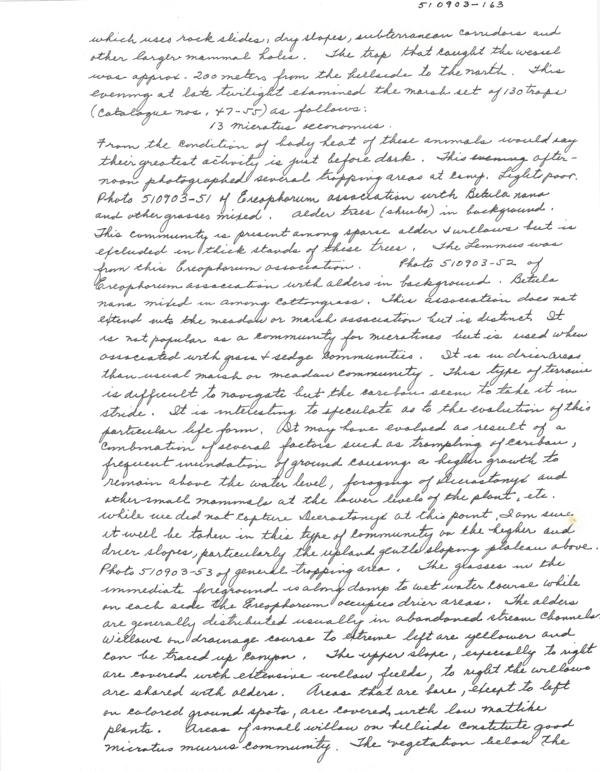 510903-163
which uses rock slides, dry slopes, subterranean corridors and
other larger mammal holes. The trap that caught the weasel
was approx. 200 meters from the hillside to the north. This
evening at late twilight examined the marsh set of 130 traps
(Catalogue nos, 47-55) as follows:
13 Microtus oeconomus.
From the condition of body heat of these animals would say
their greatest activity is just before dark. This evening after-
noon photographed several trapping areas at camp. Light poor.
Photo 510903-51 of Ereophorum association with Betula nana
and other grasses mixed. Alder trees (shrubs) in background.
This community is present among sparse alder & willows but is
excluded in thick stands of these trees. The Lemmus was
from this Ereophorum association. Photo 510903-52 of
Ereophorum association with alders in background. Betula
nana mixed in among Cottongrass. This association does not
extend into the meadow or marsh association but is distinct. It
is not popular as a community for microtines but is used when
associated with grass & sedge communities. It is in drier areas
than usual marsh or meadow community. This type of terrain
is difficult to navigate but the caribou seem to take it in
stride. It is interesting to speculate as to the evolution of this
particular life form. It may have evolved as result of a
Combination of several factors such as trampling of caribou,
frequent inundation of ground causing a higher growth to
remain above the water level, foraging of Dicrostonyx and
other small mammals at the lower levels of the plant, etc.
while we did not capture Dicrostonyx at this point I am sure
it will be taken in this type of community on the higher and
drier slopes, particularly the upland gentle sloping plateau above.
Photo 510903-53 of general trapping area. The grasses in the
immediate foreground is along damp to wet water course while
on each side the Ereophorum occupies drier areas. The alders
are generally distributed usually in abandoned stream channels.
Willows on drainage course to extreme left are yellower and
can be traced up canyon. The upper slope, especially to right
are covered with extensive willow fields, to right the willows
are shared with alders. Areas that are bare, except to left
on colored ground spots, are covered with low matlike
plants. Areas of small willow on hillside constitute good
microtus muirus community. The vegetation below the